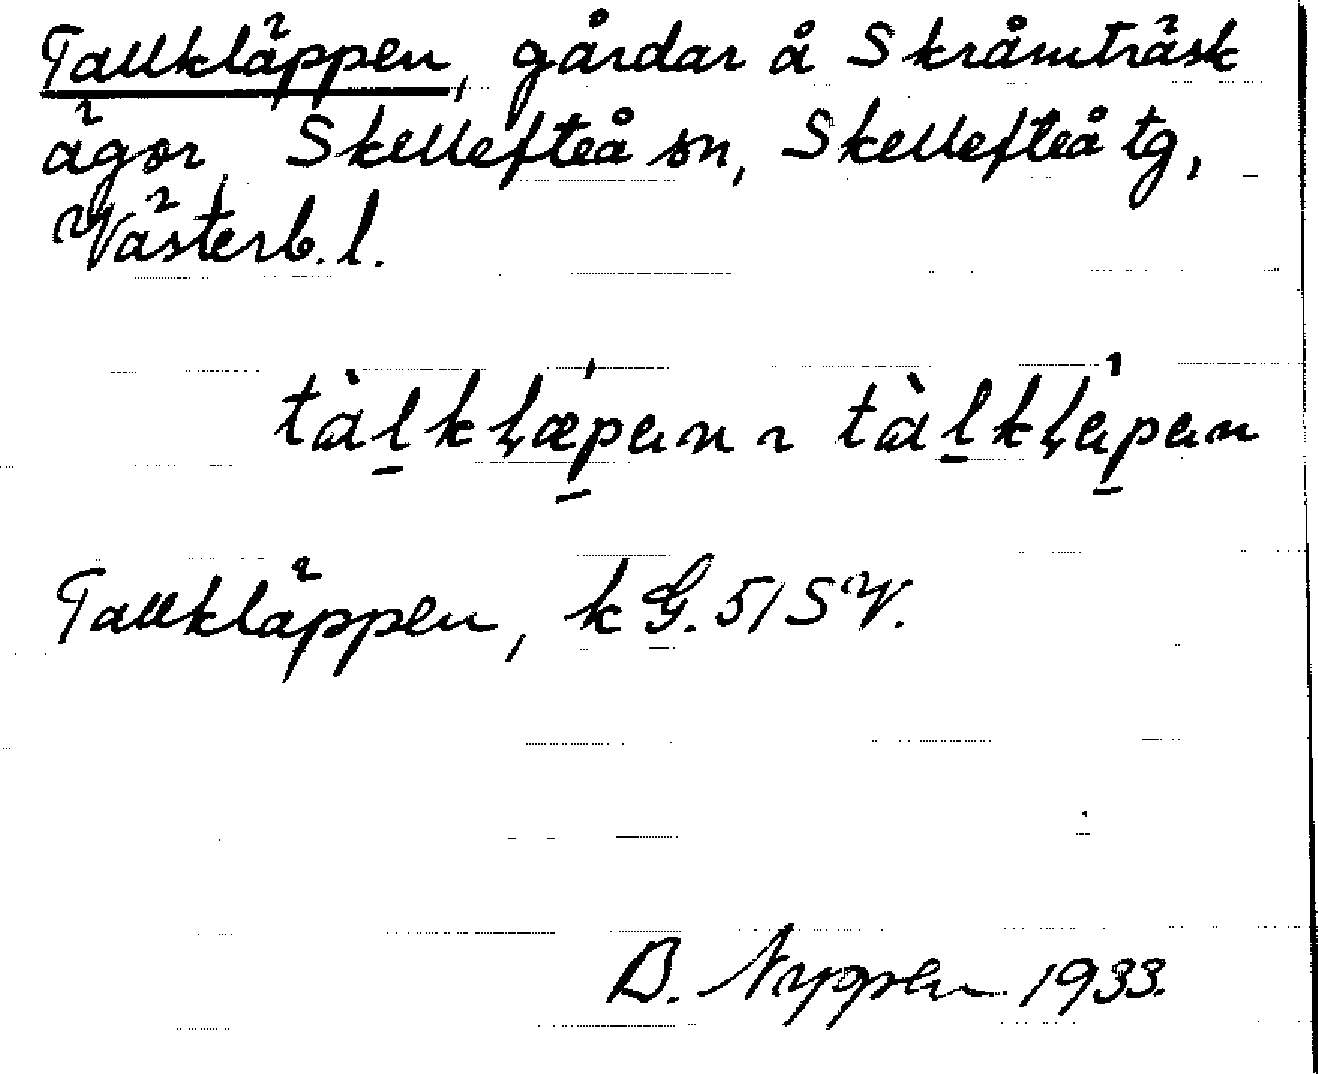 Tallkläppen, gårdar å Skråmträsk
ägor, Skellefteå sn, Skellefteå tg,
Västerb. l.
tàl̲kḷæp̲ən ~ tàl̲kḷep̲ən
Tallkläppen, k G. 51 SV.
B. 1933.